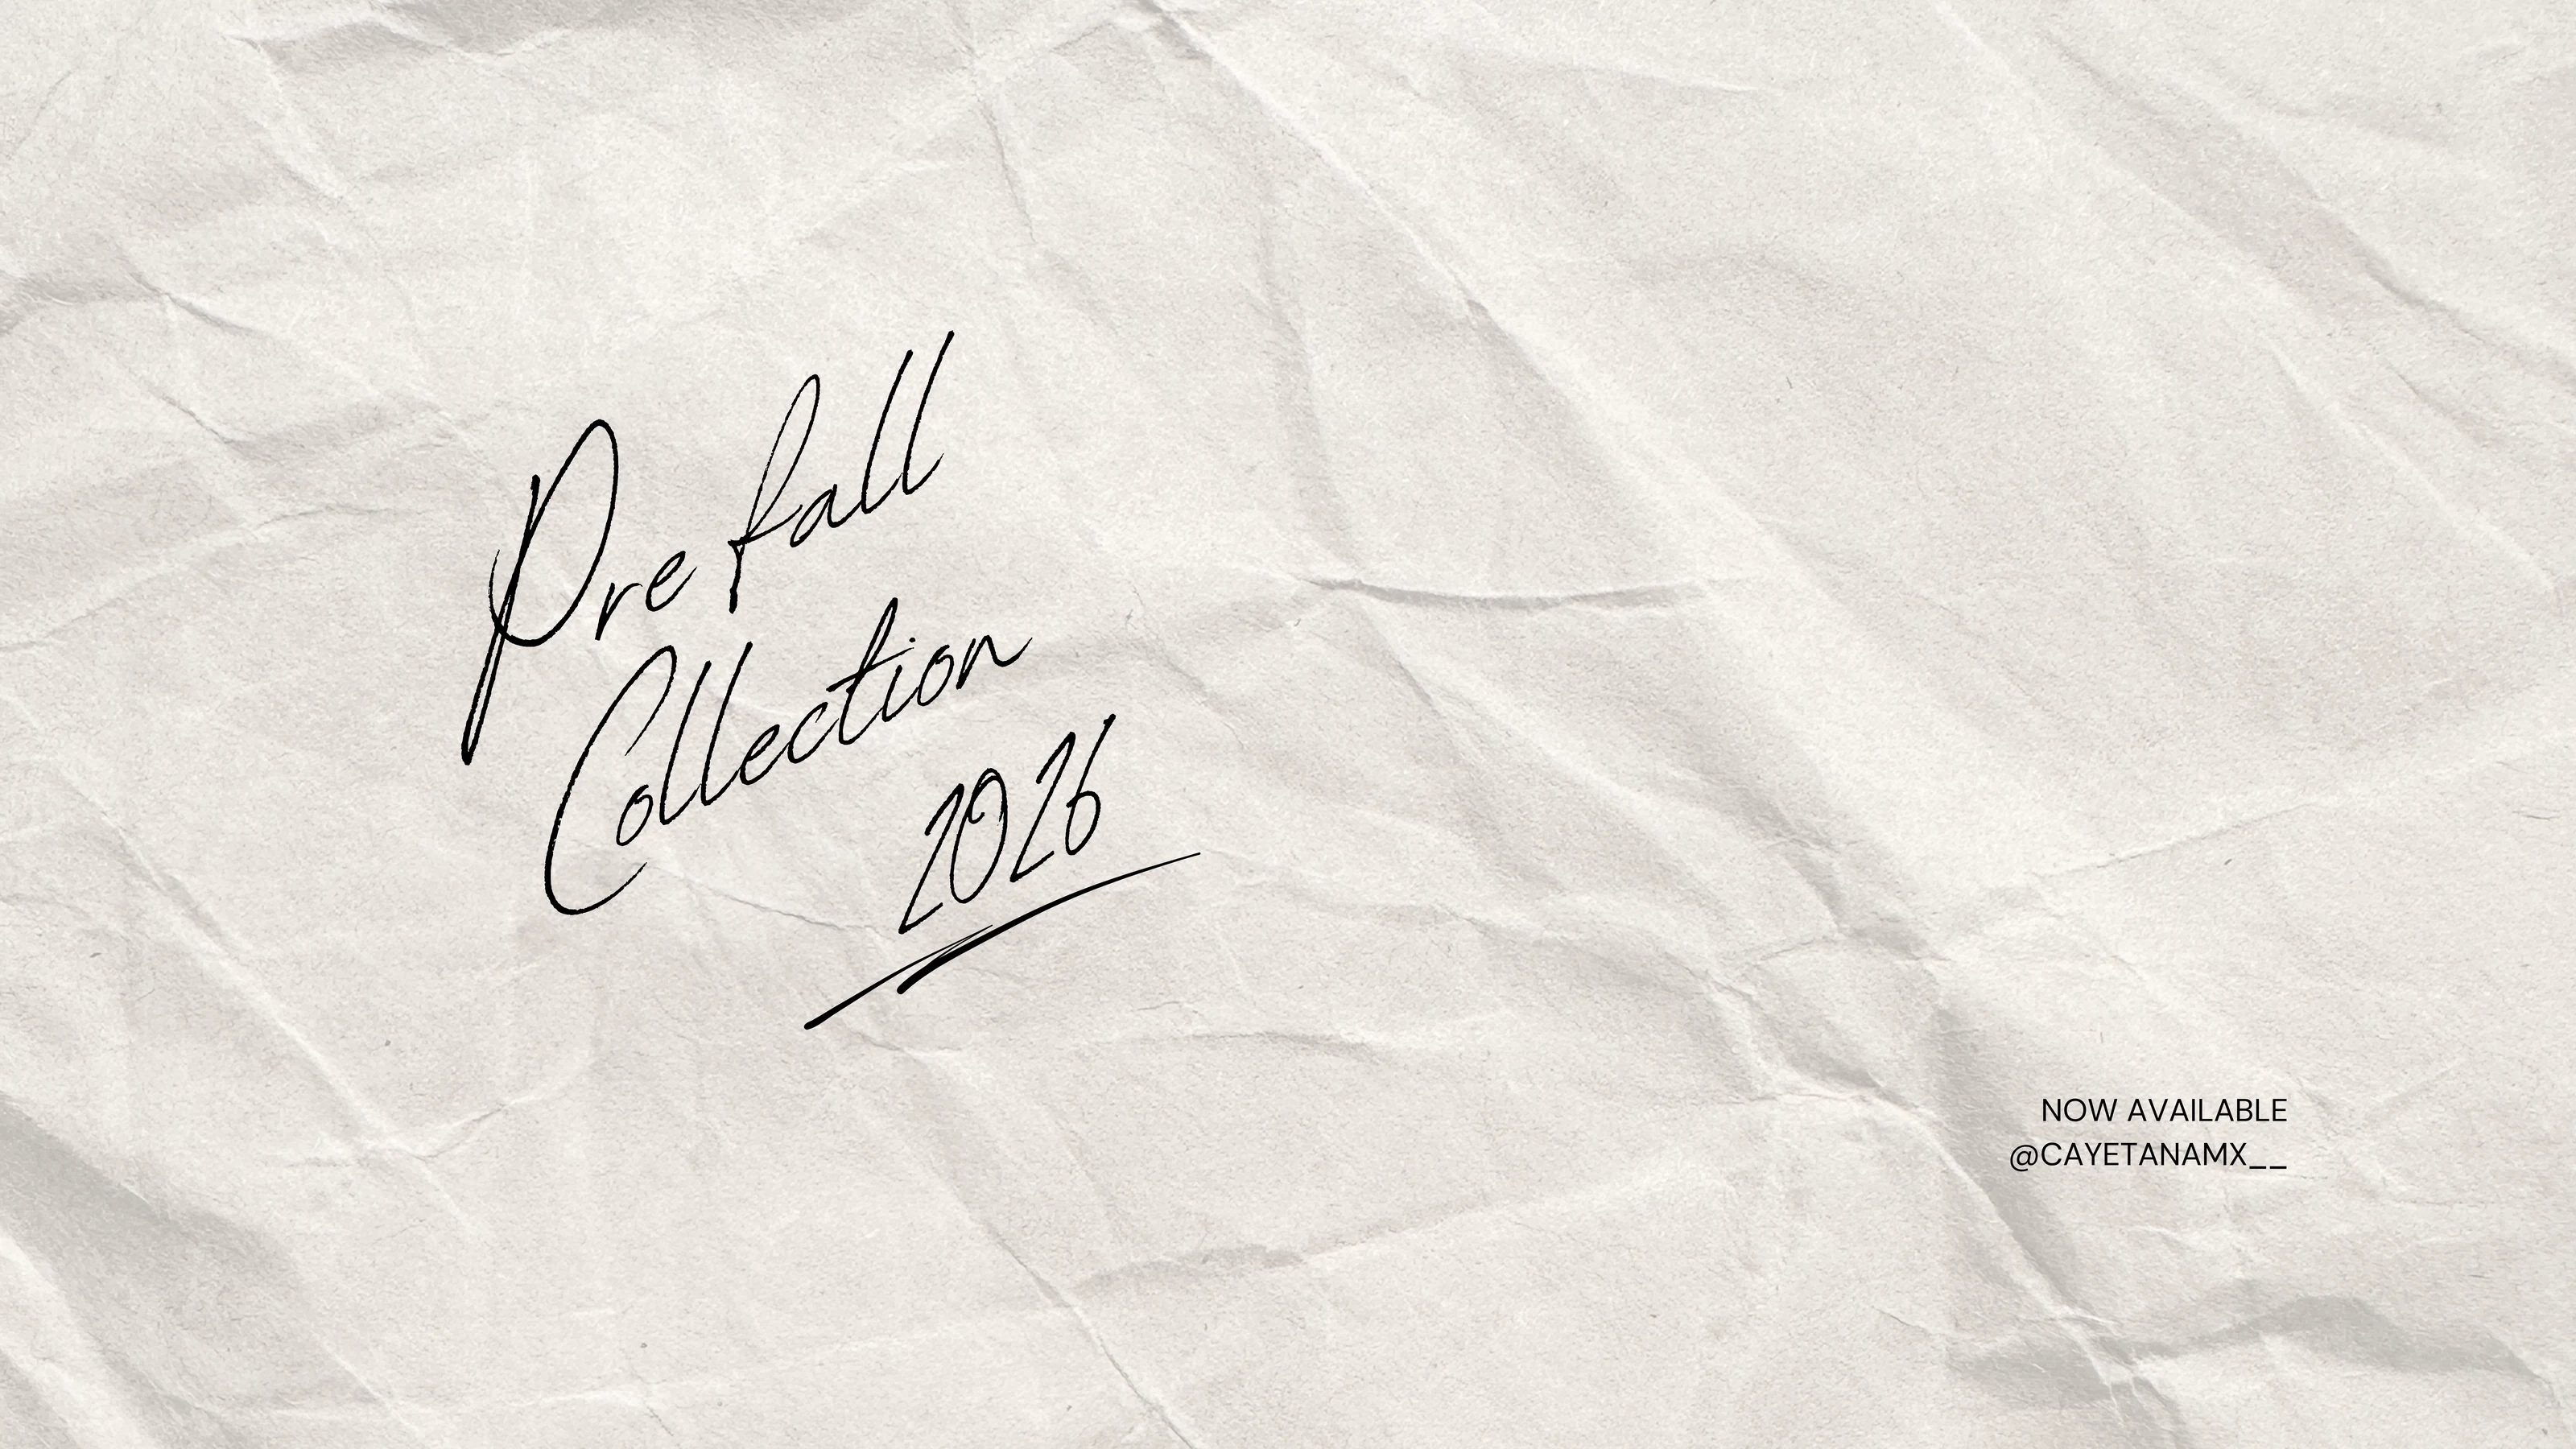 Pre fall
Collection
2026
NOW AVAILABLE
@CAYETANAMX__